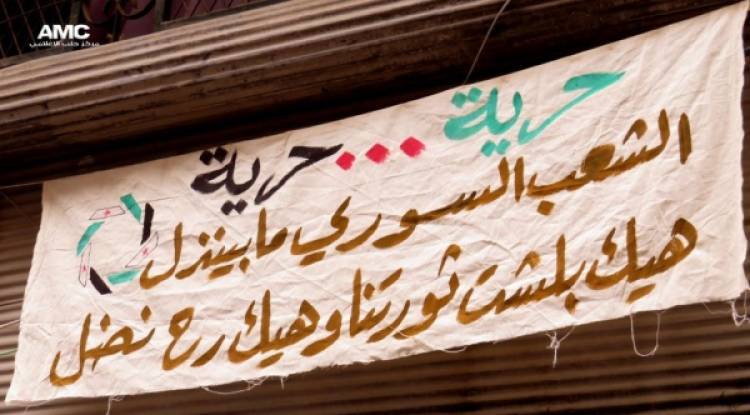 AMC
مركز حلب الاعلامي
حرية ... حرية
الشعب السوري ما بينذل
هيك بلشت ثورتنا وهيك رح نضل